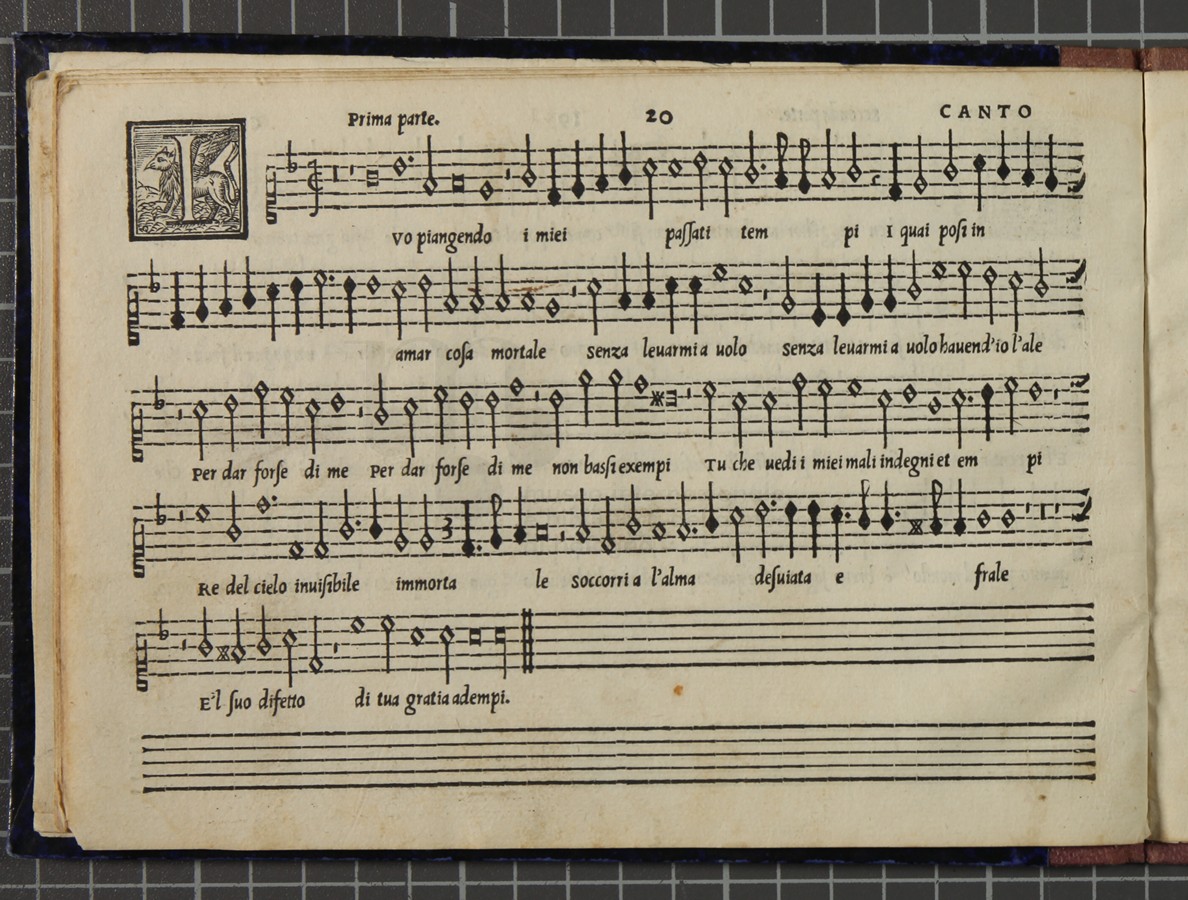 Prima parte. 20 CANTO
I vo piangendo i miei paſſati tem pi I quai poſi in
amar coſa mortale senza leuarmi a uolo senza leuarmi a uolo hauend'io l'ale
Per dar forſe di me Per dar forſe di me non baſſi exempi Tu che uedi i miei mali indegni et em pi
Re del cielo inuiſibile immorta le soccorri a l'alma deſuiata e frale
E'l ſuo difetto di tua gratia adempi.